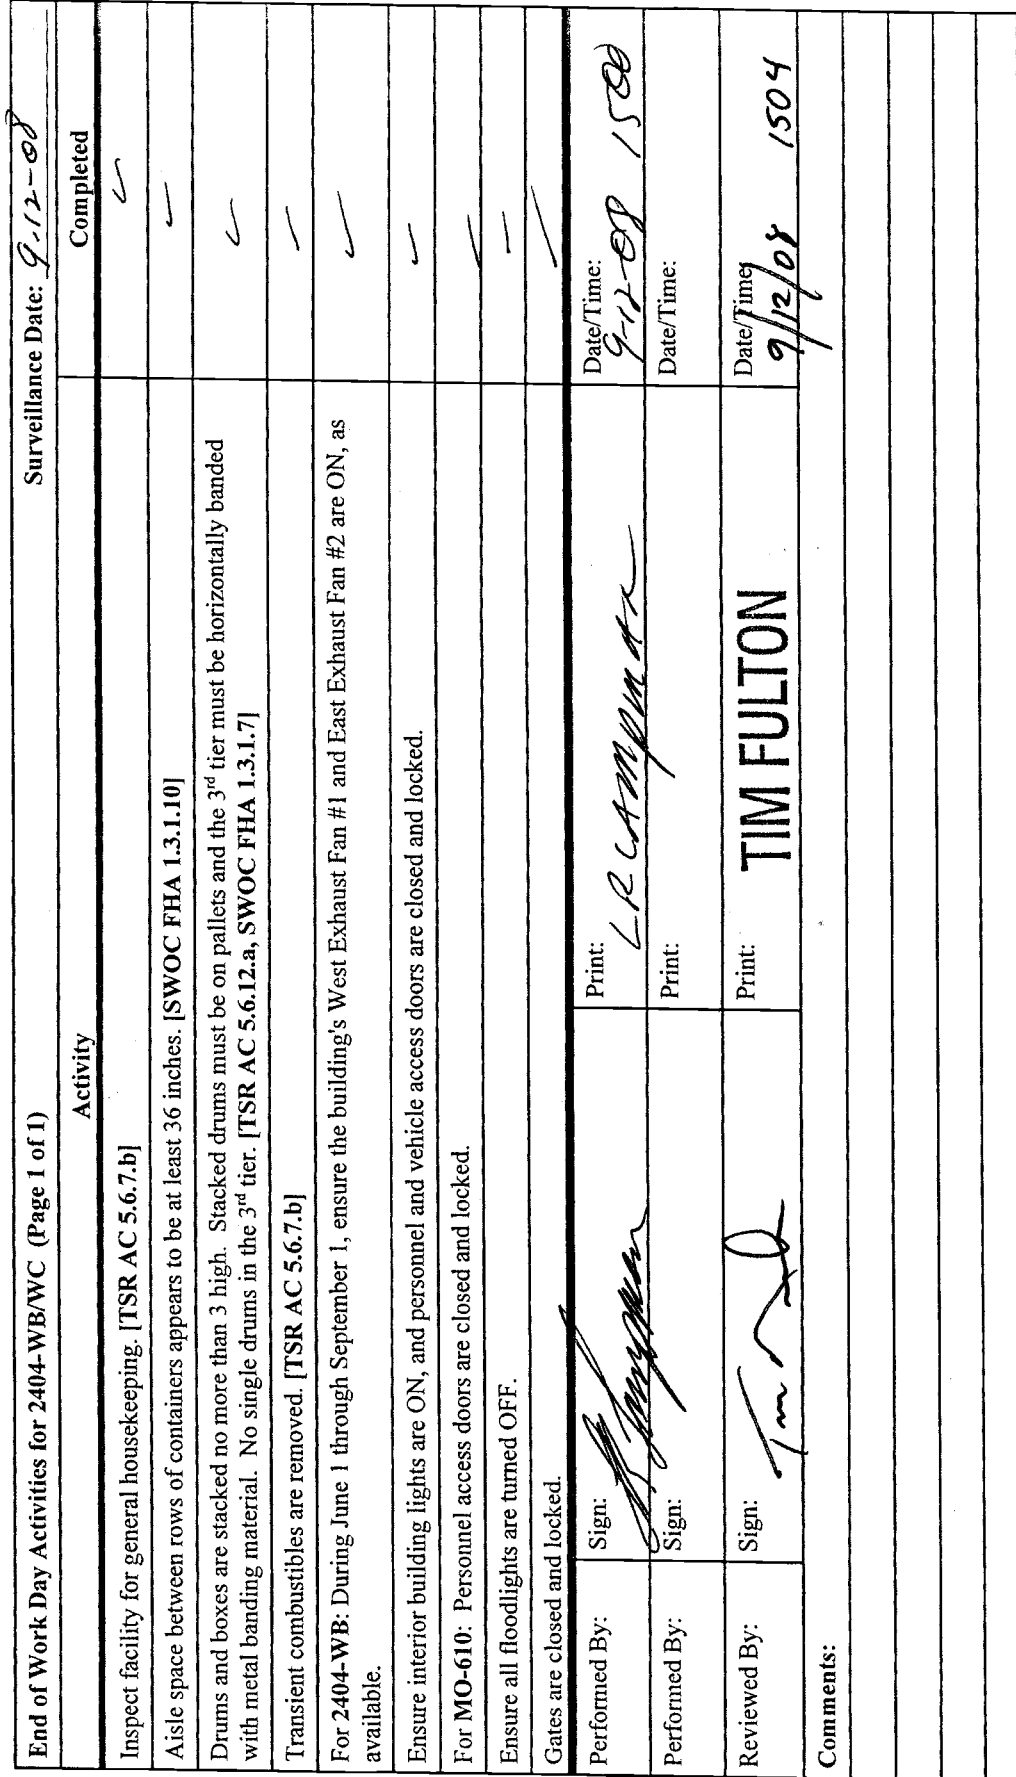 End of Work Day Activities for 2404-WB/WC (Page 1 of 1) Surveillance Date: 9-12-08
Activity Completed
Inspect facility for general housekeeping. [TSR AC 5.6.7.b] ✓
Aisle space between rows of containers appears to be at least 36 inches. [SWOC FHA 1.3.1.10] ✓
Drums and boxes are stacked no more than 3 high. Stacked drums must be on pallets and the 3rd tier must be horizontally banded ✓
with metal banding material. No single drums in the 3rd tier. [TSR AC 5.6.12.a, SWOC FHA 1.3.1.7]
Transient combustibles are removed. [TSR AC 5.6.7.b] ✓
For 2404-WB: During June 1 through September 1, ensure the building's West Exhaust Fan #1 and East Exhaust Fan #2 are ON, as ✓
available.
Ensure interior building lights are ON, and personnel and vehicle access doors are closed and locked. ✓
For MO-610: Personnel access doors are closed and locked. ✓
Ensure all floodlights are turned OFF. ✓
Gates are closed and locked. ✓
Performed By: Sign: Print: LR Date/Time: 9-12-08 1500
Performed By: Sign: Print: Date/Time:
Reviewed By: Sign: Print: TIM FULTON Date/Time: 9/12/08 1504
Comments: